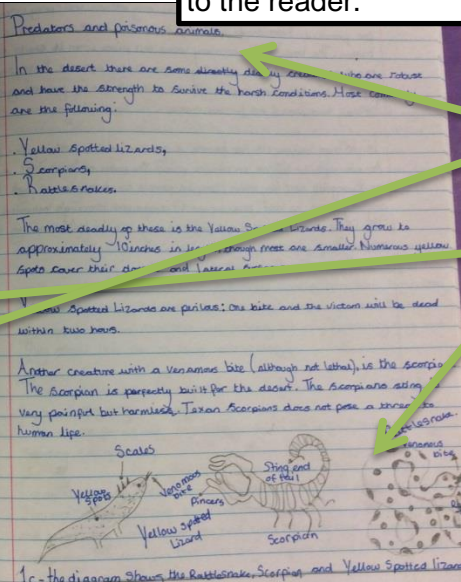 to the reader.
Predators and poisonous animals.
In the desert there are some directly deadly who are robust
and have the strength to survive the harsh conditions. Most
are the following:
. Yellow Spotted lizards,
. Scorpians,
. Rattlesnakes.
The most deadly of these is the Yellow Lizards. They grow to
approximately 10inches in though most are smaller. Numerous yellow
spots cover their and lateral
Spotted Lizards are perilous: one bite and the victim will be dead
within two hours.
Another creature with a venomous bite (although not lethal), is the scorpion
The scorpian is perfectly built for the desert. The scorpians sting is
very painful but harmless. Texan Scorpians does not pose a threat to
human life.
Scales
Yellow
spots
Venomous
bite
Yellow spotted
Lizard
Pincers
Sting end
of tail
Scorpian
Rattlesnake.
Venomous
bite
1c - the diagram shows the Rattlesnake, Scorpion and Yellow Spotted lizard